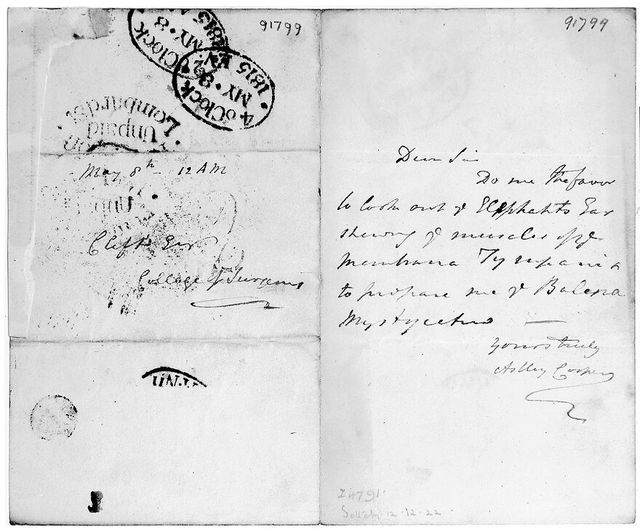 91799
8 o'Clock
MY. 8
1815
4 o'Clock
MY. 8
1815 EV
Unpaid
Lombard St
May 8th 12 AM
Clift Esqr
College of Surgeons
91799
Dear Sir
Do me the favor
to look out ye Elephants Ear
shewing ye muscles of ye
Membrana Tympani &
to prepare me ye Balena
Mysticetus —
Yours truly
Astley Cooper
Sotheby 12.12.22